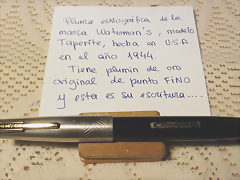 Pluma estilográfica de la
marca Waterman's, modelo
Taperite, hecha en U.S.A.
en el año 1944.
Tiene plumín de oro
original de punto FINO
y esta es su escritura....